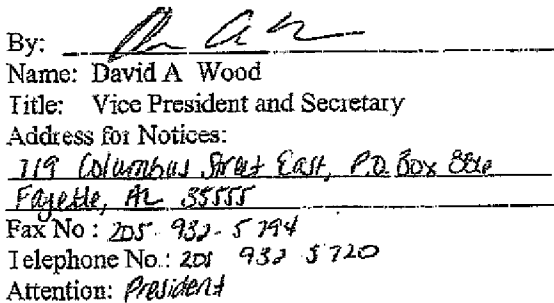 By:
Name: David A Wood
Title: Vice President and Secretary
Address for Notices:
719 Columbus Street East, P.O. Box
Fayette, AL 35555
Fax No : 205 932-5794
Telephone No.: 205 932 5720
Attention: President